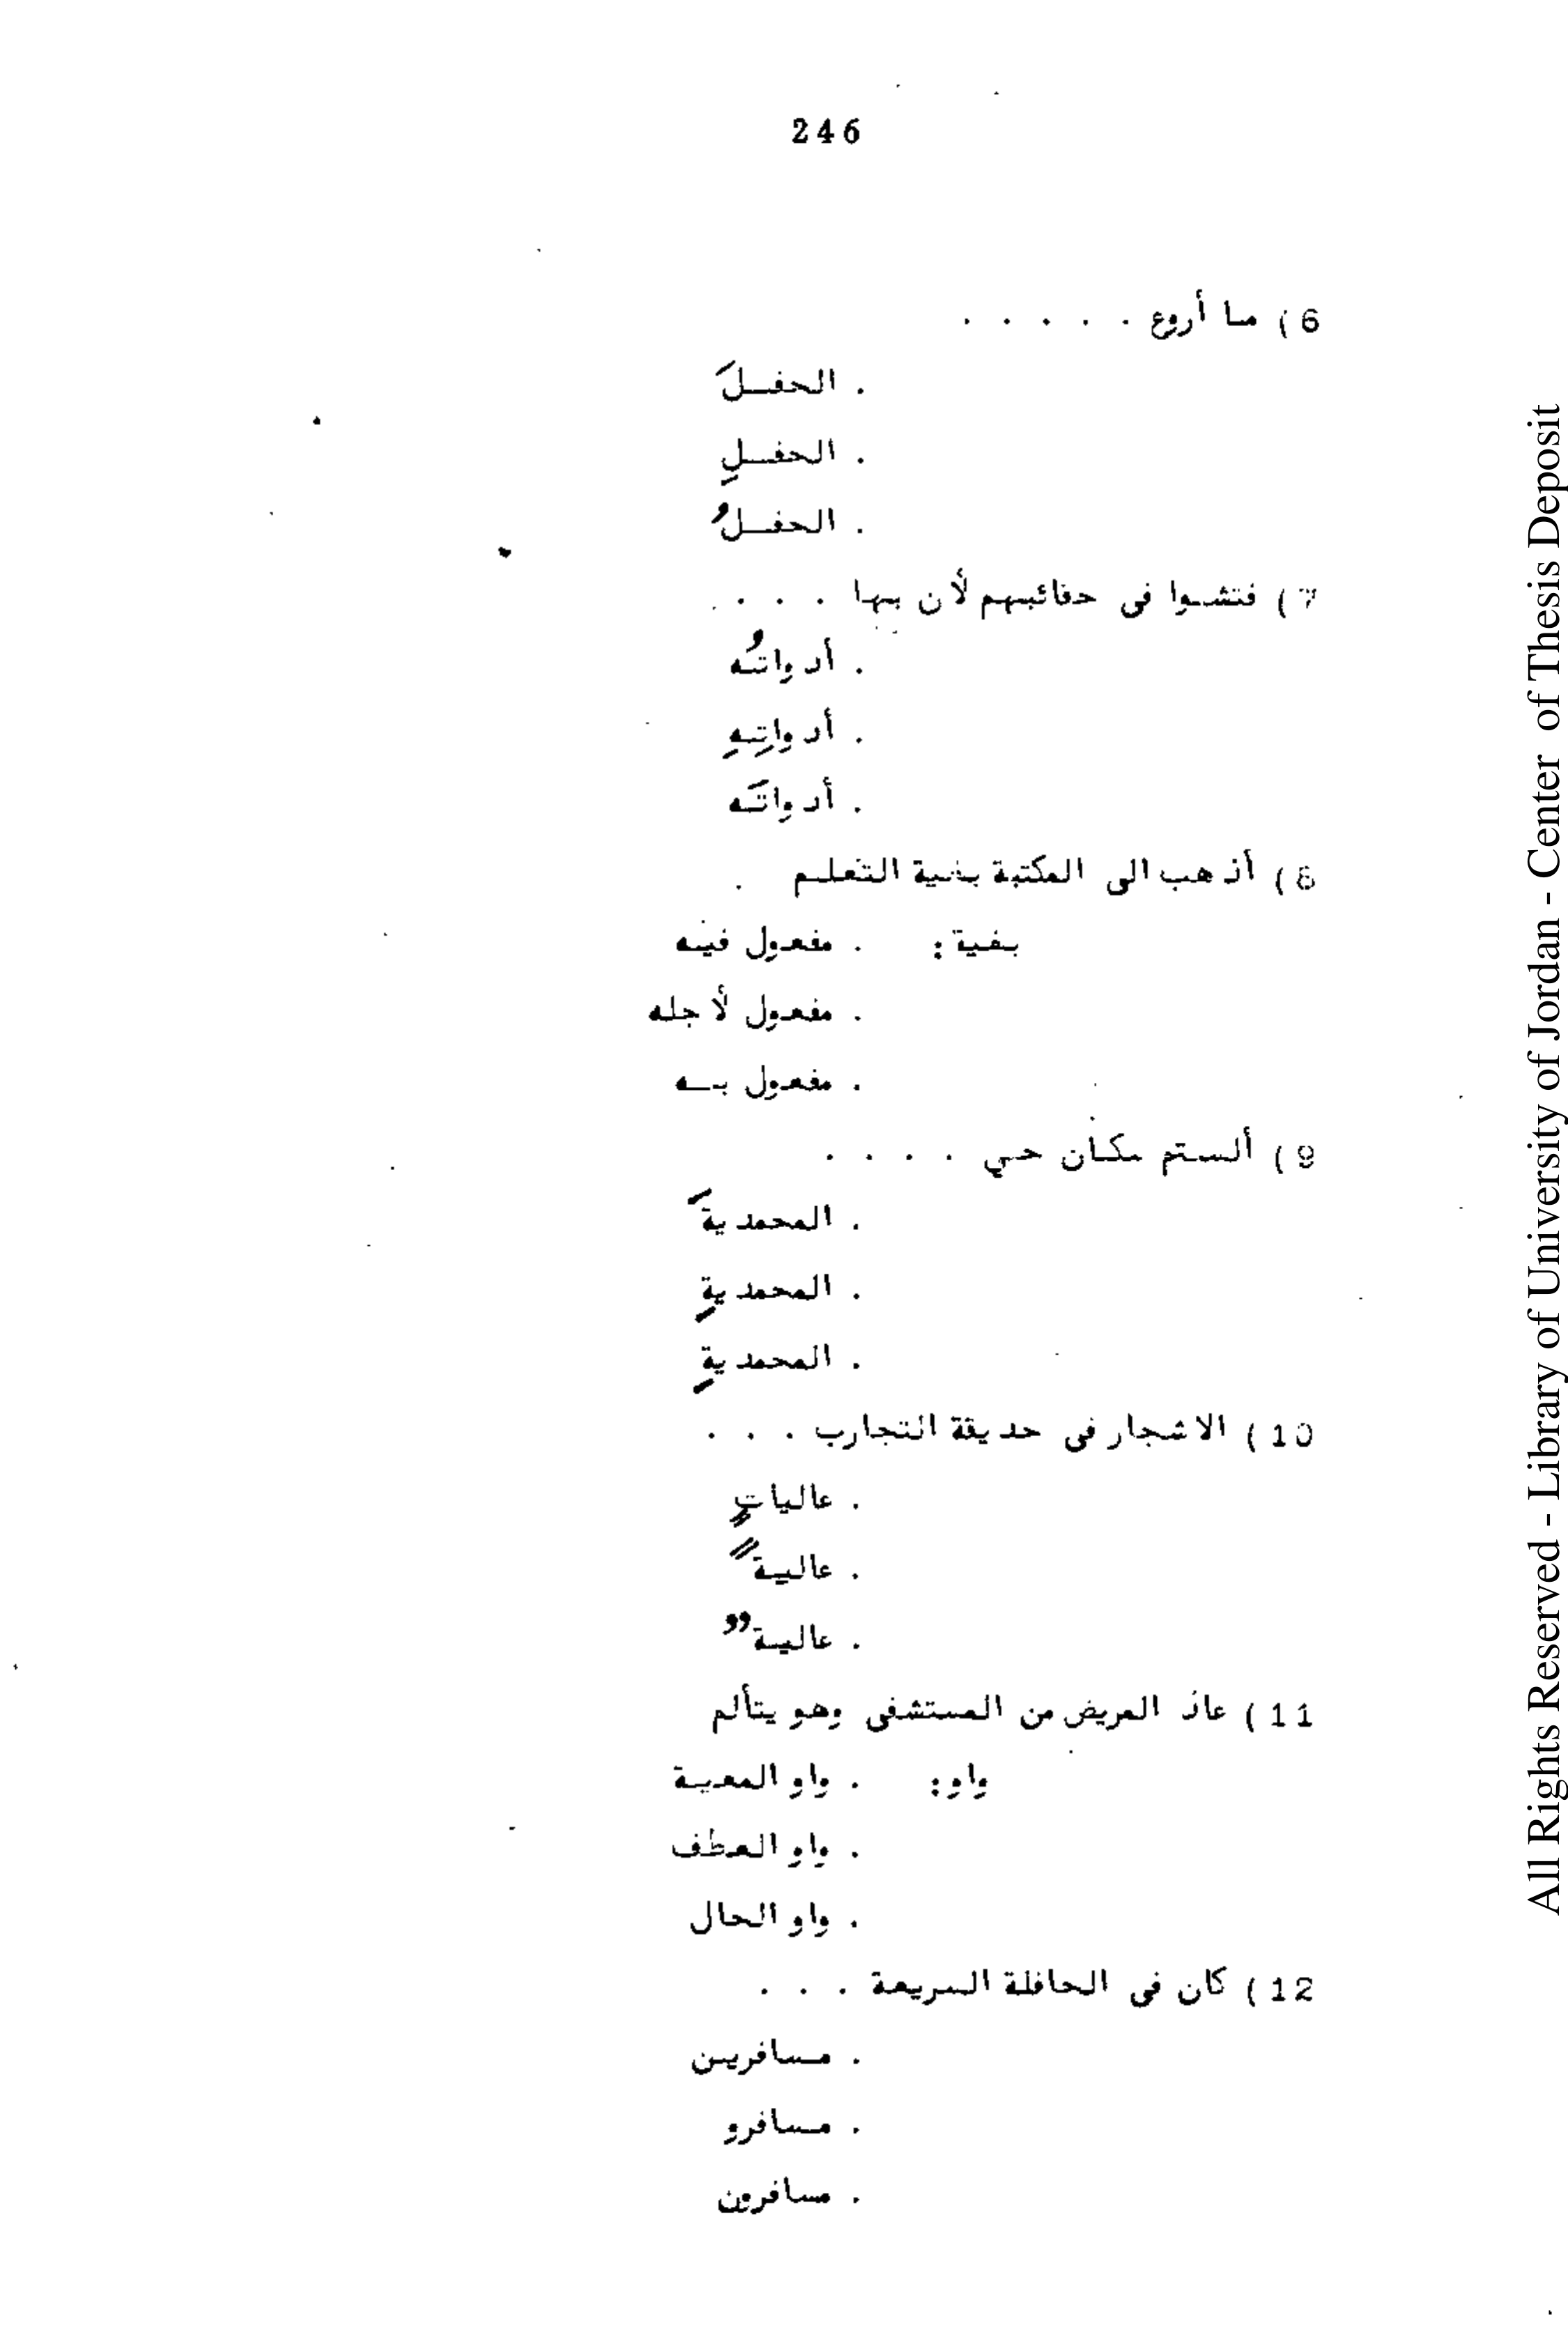 246
6) ما أروع . . . . .
. الحفلَ
. الحفلِ
. الحفلُ
7) فتشوا فى حقائبهم لأن بها . . . .
. أدواتُه
. أدواتِهِ
. أدواتَه
8) أذهب الى المكتبة بغية التعلم .
بغية: . مفعول فيه
. مفعول لأجله
. مفعول به
9) ألستم سكان حي . . . .
. المحمديةَ
. المحمديةِ
. المحمديةِ
10) الاشجار فى حديقة التجارب . . .
. عالياتٍ
. عاليةً
. عاليةٌ
11) عاد المريض من المستشفى وهو يتألم
واو: . واو المعية
. واو العطف
. واو الحال
12) كان فى الحافلة السريعة . . .
. مسافرين
. مسافرو
. مسافرون
All Rights Reserved - Library of University of Jordan - Center of Thesis Deposit